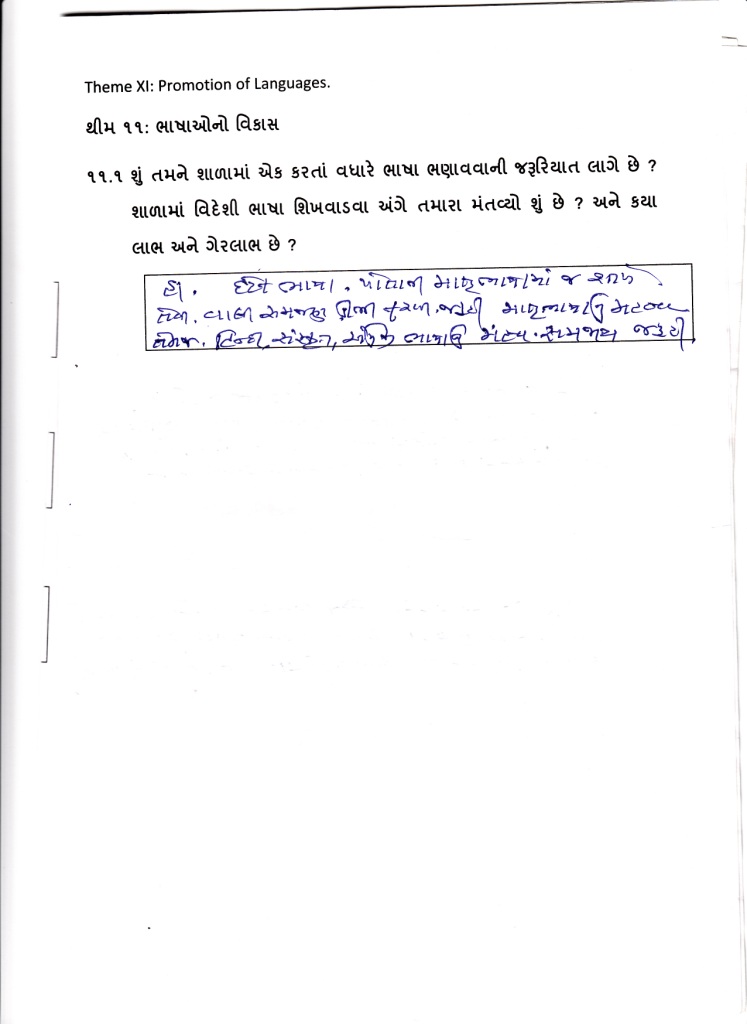 Theme XI: Promotion of Languages.
થીમ ૧૧: ભાષાઓનો વિકાસ
૧૧.૧ શું તમને શાળામાં એક કરતાં વધારે ભાષા ભણાવવાની જરૂરિયાત લાગે છે ?
શાળામાં વિદેશી ભાષા શિખવાડવા અંગે તમારા મંતવ્યો શું છે ? અને કયા
લાભ અને ગેરલાભ છે ?
હા. દરેક ભાષા. પોતાની માતૃભાષામાં જ
માતૃભાષાનું મહત્વ
તેમજ. હિન્દી, સંસ્કૃત, જરૂરી